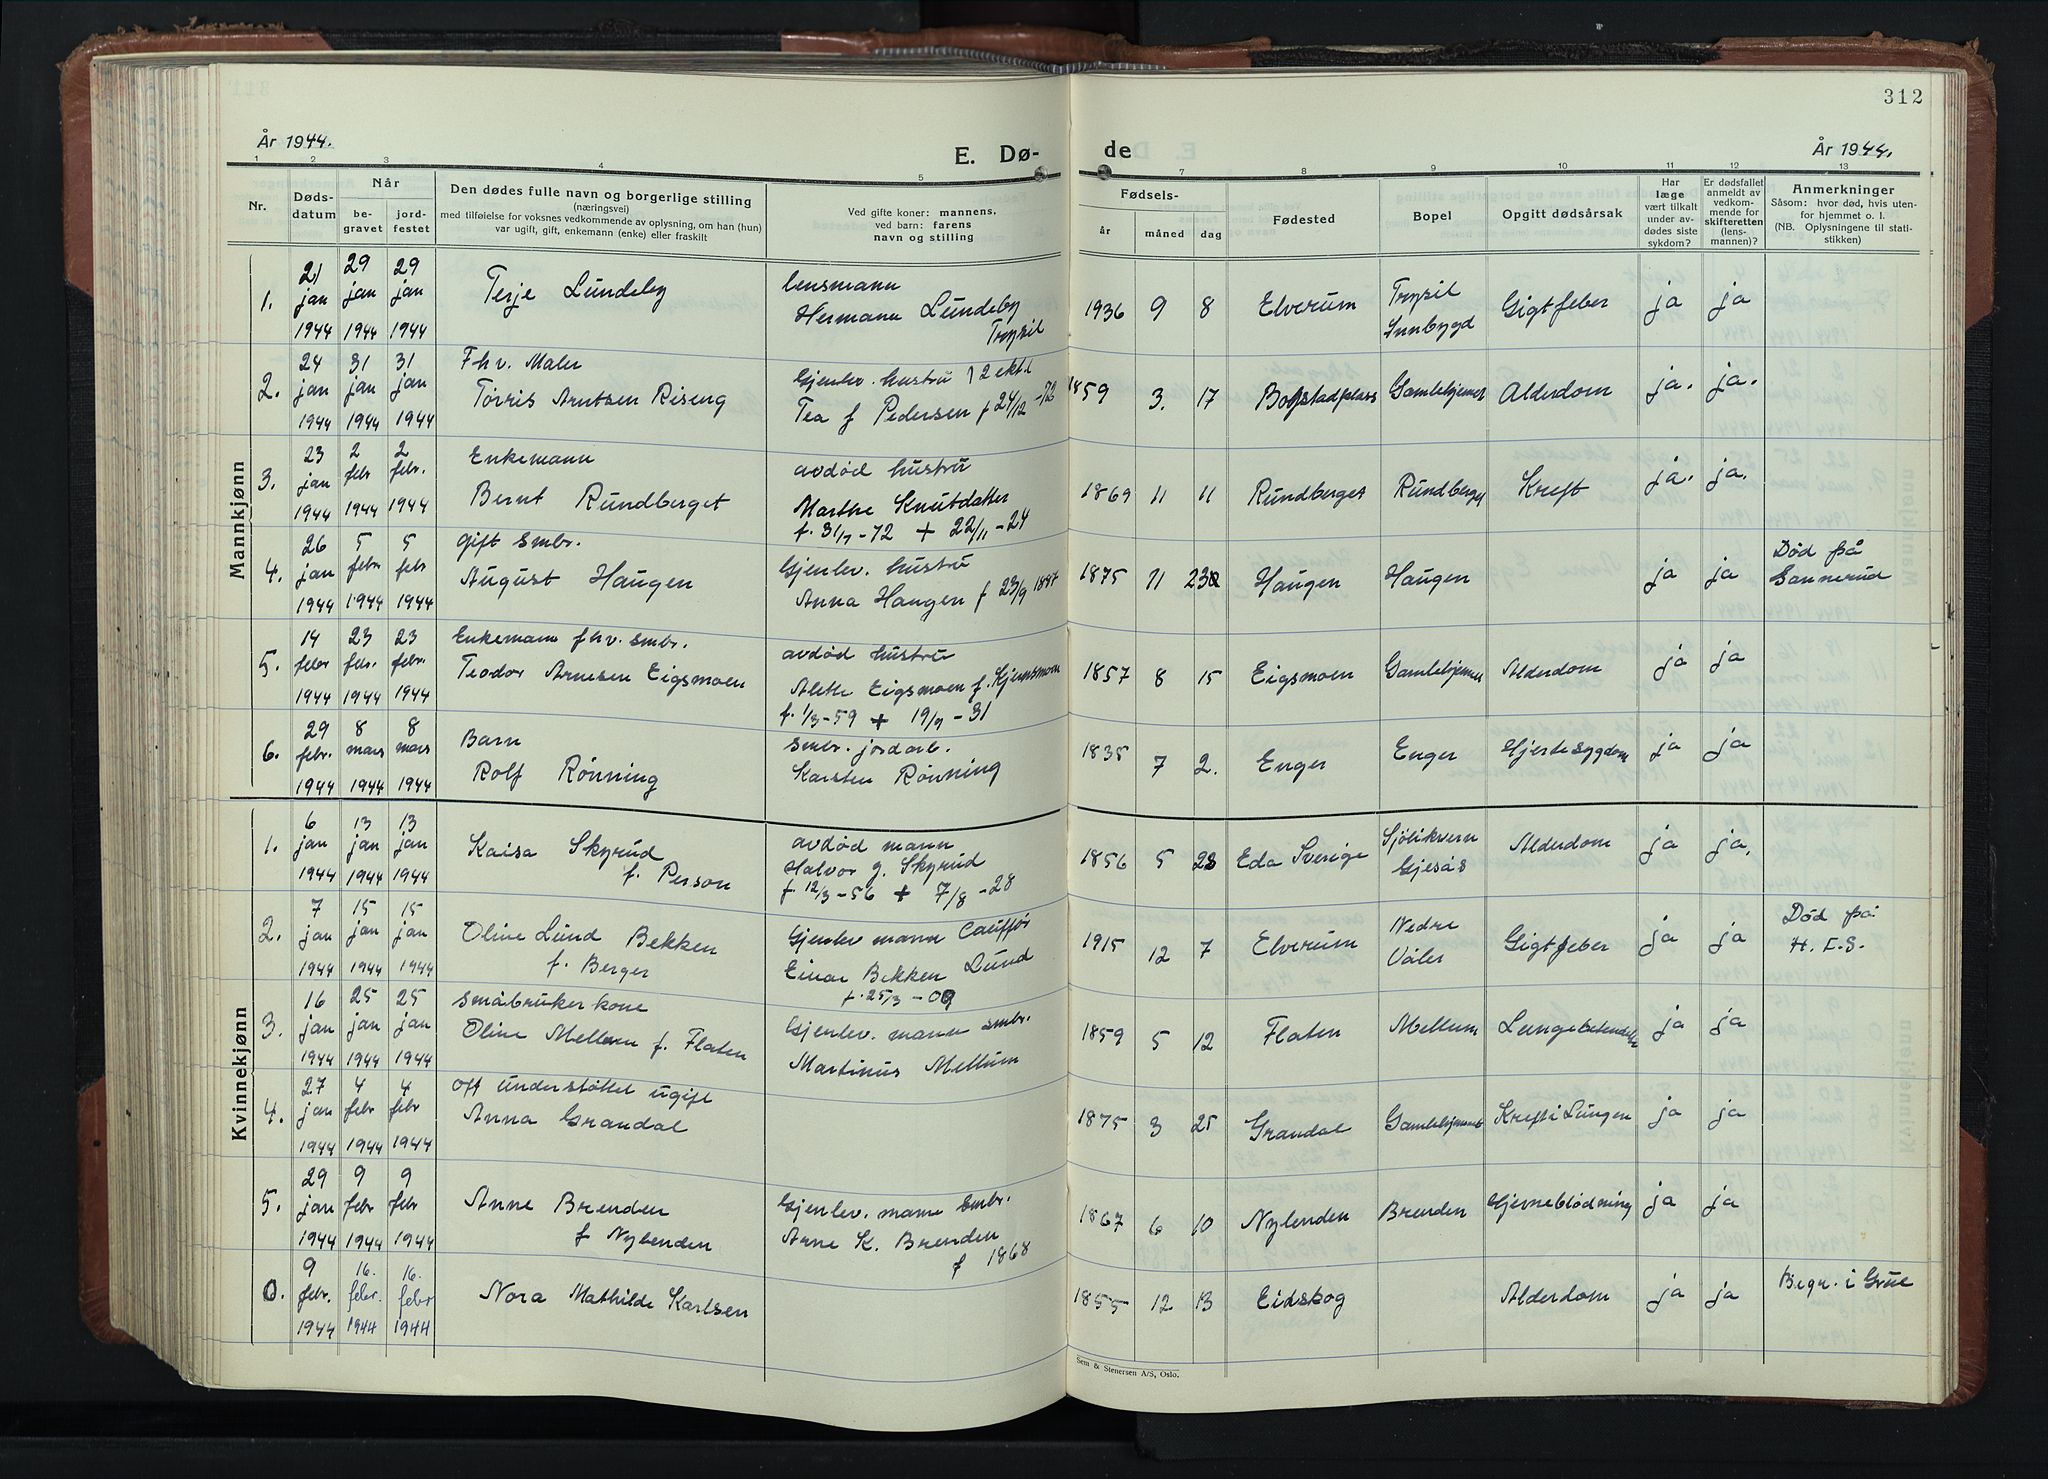 312
År 1944.
E. Dø-
de
År 1944.
1 2 3 4 5 7 8 9 10 11 12 13
Nr.
Døds-
datum
Når
be-
gravet
jord-
festet
Den dødes fulle navn og borgerlige stilling
(næringsvei)
med tilføielse for voksnes vedkommende av oplysning, om han (hun)
var ugift, gift, enkemann (enke) eller fraskilt
Ved gifte koner: mannens,
ved barn: farens
navn og stilling
Fødsels-
år
måned
dag
Fødested
Bopel
Opgitt dødsårsak
Har
læge
vært tilkalt
under av-
dødes siste
sykdom?
Er dødsfallet
anmeldt av
vedkom-
mende for
skifteretten
(lens-
mannen)?
Anmerkninger
Såsom: hvor død, hvis uten-
for hjemmet o. l.
(NB. Oplysningene til stati-
stikken)
Mannkjønn
1.
21 jan 1944
29 jan 1944
29 jan 1944
Terje Lundeby
lensmann
Hermann Lundeby
Trysil
1936 9 8 Elverum
Trysil
Innbygd
Gigtfeber ja ja
2.
24 jan 1944
31 jan 1944
31 jan 1944
Fhv. Maler
Torris Arntsen Riseng
Gjenlev. hustru
Tea f Pedersen f 24/12 -72
1859 3. 17 Gamlehjemet Alderdom ja. ja.
3.
23 jan 1944
2 febr 1944
2 febr. 1944
Enkemann
Bernt Rundberget
avdød hustru
Marthe Knutdatter
f. 31/7 - 72 + 22/11 - 24
1869 11 11 Rundberget Rundberget Kreft ja. ja.
4.
26 jan 1944
5 febr 1944
5 febr 1944
gift smbr.
August Haugen
Gjenlev. hustru
Anna Haugen f 23/9 1887
1875 11 Haugen Haugen ja ja
Død på
Sannerud
5.
14 febr 1944
23 febr. 1944
23 febr. 1944
Enkemann fhv. smbr.
Teodor Arnesen Eigsmoen
avdød hustru
Alette Eigsmoen f. Kjernsmoen
f. 1/3 - 59 + 19/7 - 31
1857 8 15 Eigsmoen Gamlehjemmet Alderdom ja ja
6.
29 febr. 1944
8 mars 1944
8 mars 1944
Barn
Rolf Rønning
smbr. jordarb.
Karsten Rønning
1835 7 2. Enger Enger Hjertesygdom ja ja
Kvinnekjønn
1.
6 jan 1944
13 jan 1944
13 jan 1944
Kaisa Skyrud
f. Person
avdød mann
Halvor g. Skyrud
f. 12/3 - 56 + 7/8 - 28
1856 5 28 Eda Sverige
Sjölikvern
Gjesås
Alderdom ja ja,
2.
7 jan 1944
15 jan 1944
15 jan 1944
Oline Lund Bekken
f. Berger
Gjenlev mann Cauffør
Einar Bekken Lund
f. 25/3 - 09
1915 12 7 Elverum
Nedre
Våler
Gigtfeber ja ja
Død på
H. E. S.
3.
16 jan 1944
25 jan 1944
25 jan 1944
småbruker kone
Oline Mellem f. Flaten
Gjenlev. mann smbr.
Martinus Mellum
1859 5 12 Flaten Mellum Lungebetendelse ja ja
4.
27 jan 1944
4 febr 1944
4 febr 1944
off understøttet ugift
Anna Grandal
1875 3 25 Grandal Gamlehjemmet Kreft i Lungen ja ja
5.
29 jan 1944
9 febr 1944
9 febr. 1944
Anne Brenden
f Nylenden
Gjenlev. mann Smbr.
Arne K. Brenden
f 1868
1867 6 10 Nylenden Brenden Hjerneblødning ja ja
0.
9 febr. 1944
16. febr. 1944
16. febr 1944
Nora Mathilde Karlsen
1855 12 13 Eidskog Alderdom ja ja
Begr. i Grue
Sem & Stenersen A/S, Oslo.